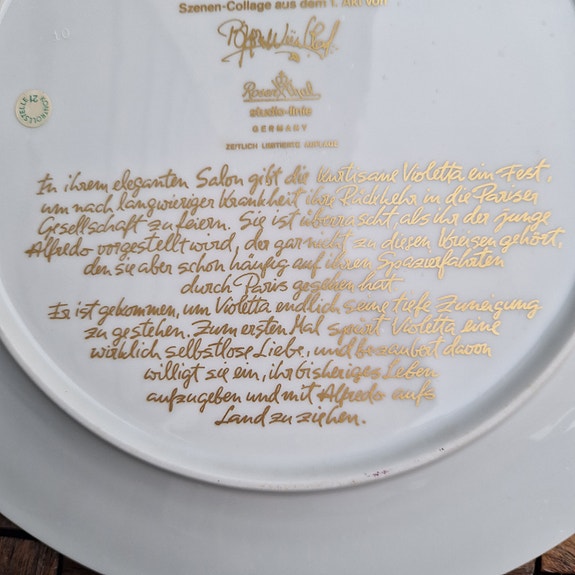 Szenen-Collage aus dem 1. Akt von
Björn Wiinblad
Rosenthal
studio-linie
GERMANY
ZEITLICH LIMITIERTE AUFLAGE
10
KONTROLLSTELLE 21
In ihrem eleganten Salon gibt die Kurtisane Violetta ein Fest,
um nach langwieriger Krankheit ihre Rückkehr in die Pariser
Gesellschaft zu feiern. Sie ist überrascht, als ihr der junge
Alfredo vorgestellt wird, der gar nicht zu diesen Kreisen gehört,
den sie aber schon häufig auf ihren Spazierfahrten
durch Paris gesehen hat.
Er ist gekommen, um Violetta endlich seine tiefe Zuneigung
zu gestehen. Zum ersten Mal spürt Violetta eine
wirklich selbstlose Liebe, und bezaubert davon
willigt sie ein, ihr bisheriges Leben
aufzugeben und mit Alfredo aufs
Land zu ziehen.